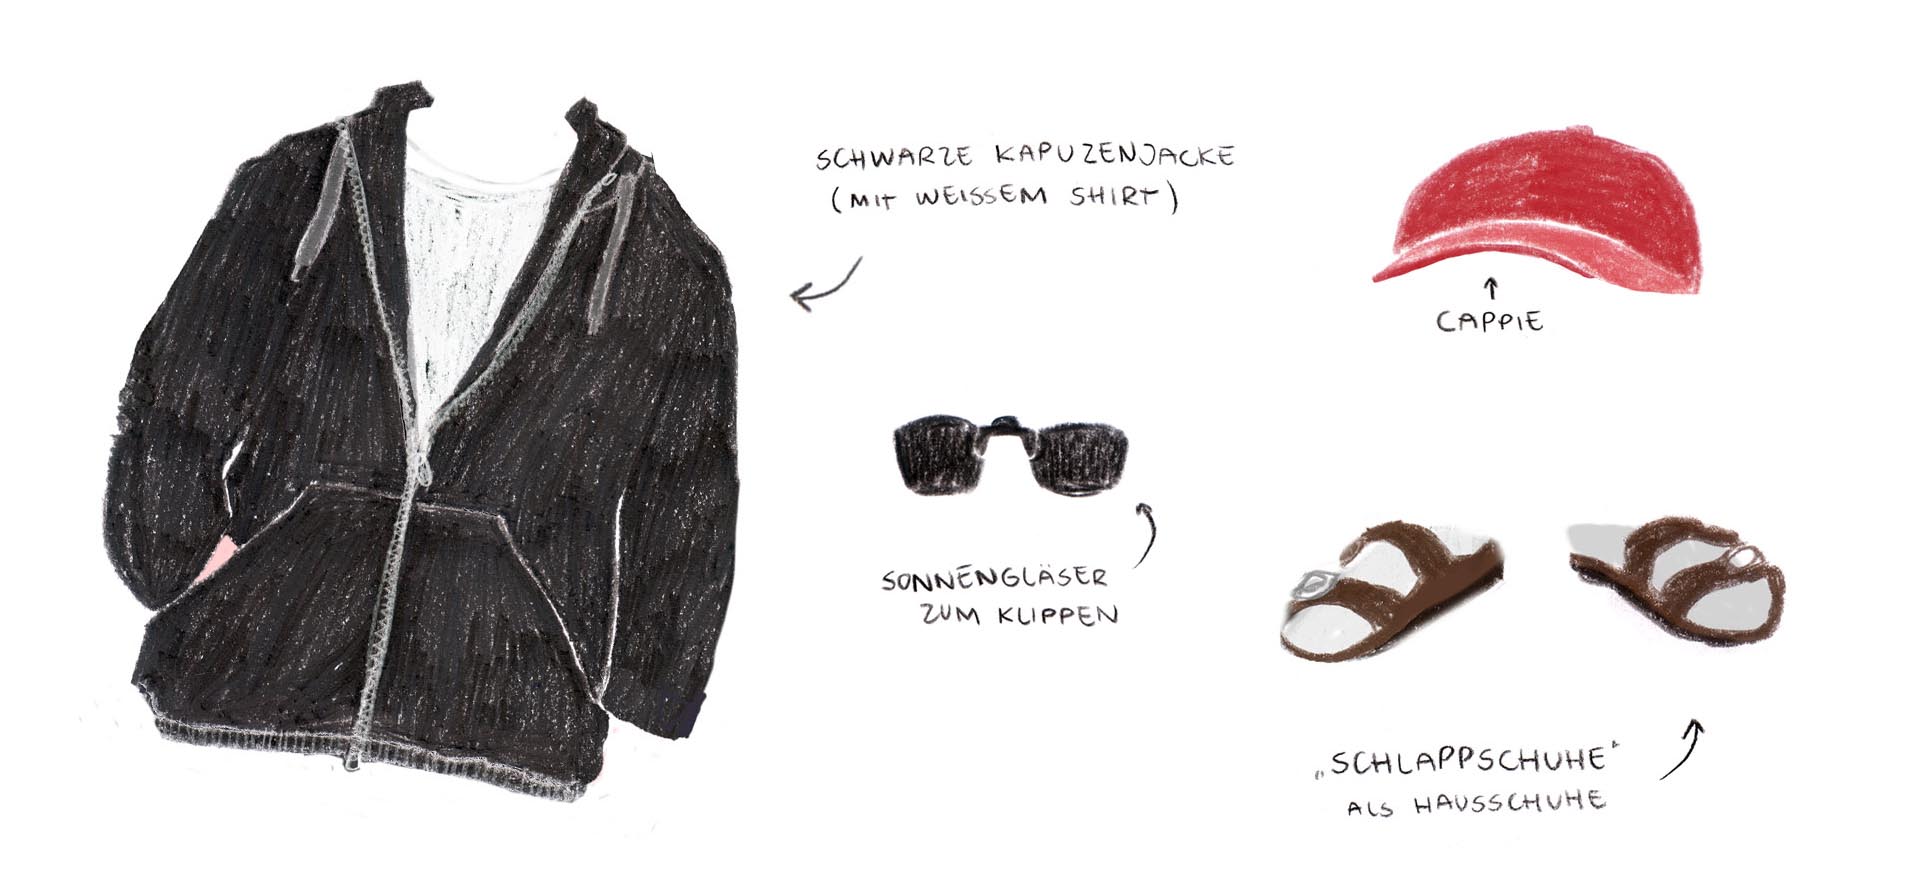 SCHWARZE KAPUZENJACKE
(MIT WEISSEM SHIRT)
CAPPIE
SONNENGLÄSER
ZUM KLIPPEN
„SCHLAPPSCHUHE“
ALS HAUSSCHUHE